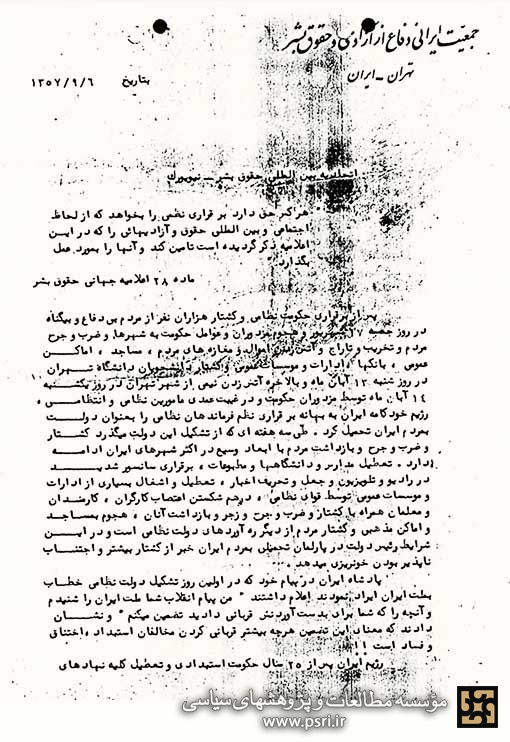 جمعیت ایرانی دفاع از آزادی و حقوق بشر
تهران - ایران
بتاریخ ۱۳۵۷/۹/۶
اتحادیه بین المللی حقوق بشر - نیویورک
هر کس حق دارد برقراری نظمی را بخواهد که از لحاظ
اجتماعی و بین المللی حقوق و آزادیهائی را که در این
اعلامیه ذکر گردیده است تامین کند و آنها را بمورد عمل
بگذارد.
ماده ۲۸ اعلامیه جهانی حقوق بشر
پس از برقراری حکومت نظامی و کشتار هزاران نفر از مردم بی دفاع و بیگناه
در روز جمعه ۱۷ شهریور و هجوم مزدوران و عوامل حکومت به شهرها و ضرب و جرح
مردم و تخریب و تاراج و آتش زدن اموال و مغازه های مردم ، مساجد ، اماکن
عمومی ، بانکها ، ادارات و موسسات عمومی و کشتار دانشجویان دانشگاه تهران
در روز شنبه ۱۳ آبان ماه و بالاخره آتش زدن نیمی از شهر تهران در روز یکشنبه
۱۴ آبان ماه توسط مزدوران حکومت و در غیبت عمدی مامورین نظامی و انتظامی ،
رژیم خودکامه ایران به بهانه برقراری نظم فرماندهان نظامی را بعنوان دولت
بمردم ایران تحمیل کرد . طی سه هفته ای که از تشکیل این دولت میگذرد کشتار
و ضرب و جرح و بازداشت مردم با ابعاد وسیع در اکثر شهرهای ایران ادامه
دارد . تعطیل مدارس و دانشگاهها و مطبوعات ، برقراری سانسور شدید
در رادیو و تلویزیون و جعل و تحریف اخبار ، تعطیل و اشغال بسیاری از ادارات
و موسسات عمومی توسط قوای نظامی ، درهم شکستن اعتصاب کارگران ، کارمندان
و معلمان همراه با کشتار و ضرب و جرح و زجر و بازداشت آنان ، هجوم بمساجد
و اماکن مذهبی و کشتار مردم از دیگر ره آوردهای دولت نظامی است و در این
شرایط رئیس دولت در پارلمان تحمیلی بمردم ایران خبر از کشتار بیشتر و اجتناب
ناپذیر بودن خونریزی میدهد .
پادشاه ایران در پیام خود که در اولین روز تشکیل دولت نظامی خطاب
بملت ایران ایراد نمودند اعلام داشتند " من پیام انقلاب شما ملت ایران را شنیدم
و آنچه را که شما برای بدست آوردنش قربانی دادید تضمین میکنم " و نشان
دادند که معنای این تضمین هرچه بیشتر قربانی کردن مخالفان استبداد ، اختناق
و فساد است !!
رژیم ایران پس از ۲۵ سال حکومت استبدادی و تعطیل کلیه نهادهای
مؤسسه مطالعات و پژوهشهای سیاسی
www.psri.ir